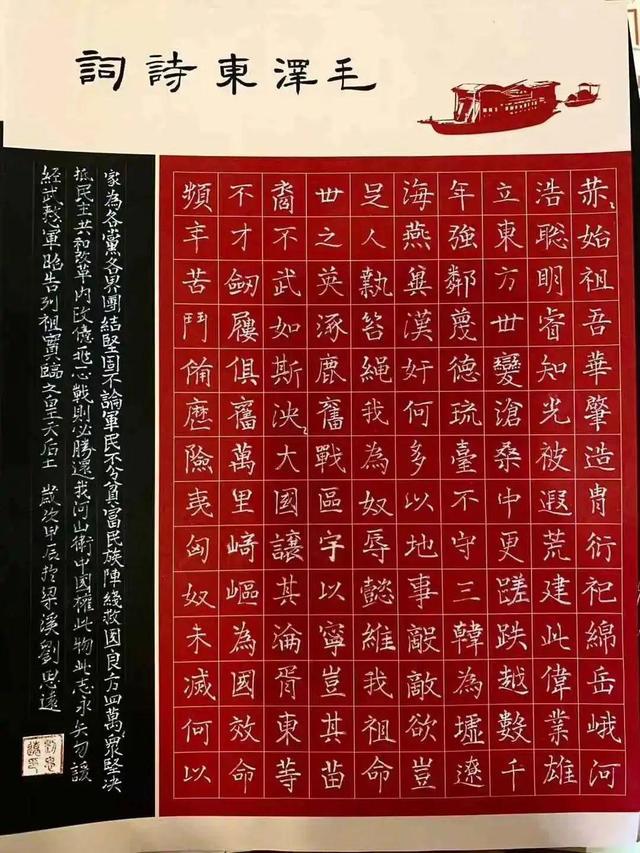 毛澤東詩詞
赫〻始祖吾華肇造冑衍祀綿岳峨河
浩聰明睿知光被遐荒建此偉業雄
立東方世變滄桑中更蹉跌越數千
年強鄰蔑德琉臺不守三韓為墟遼
海燕冀漢奸何多以地事敵敵欲豈
足人執笞繩我為奴辱懿維我祖命
世之英涿鹿奮戰區宇以寧豈其苗
裔不武如斯泱〻大國讓其淪胥東等
不才劒屨俱奮萬里崎嶇為國效命
頻年苦鬥備歷險夷匈奴未滅何以
家為各黨各界團結堅固不論軍民不分貧富民族陣綫救國良方四萬〻眾堅決
抵民主共和改革內政億兆一心戰則必勝還我河山衛中國權此物此志永矢勿諼
經武整軍昭告列祖實臨之皇天后土 歲次甲辰於梁溪劉思遠